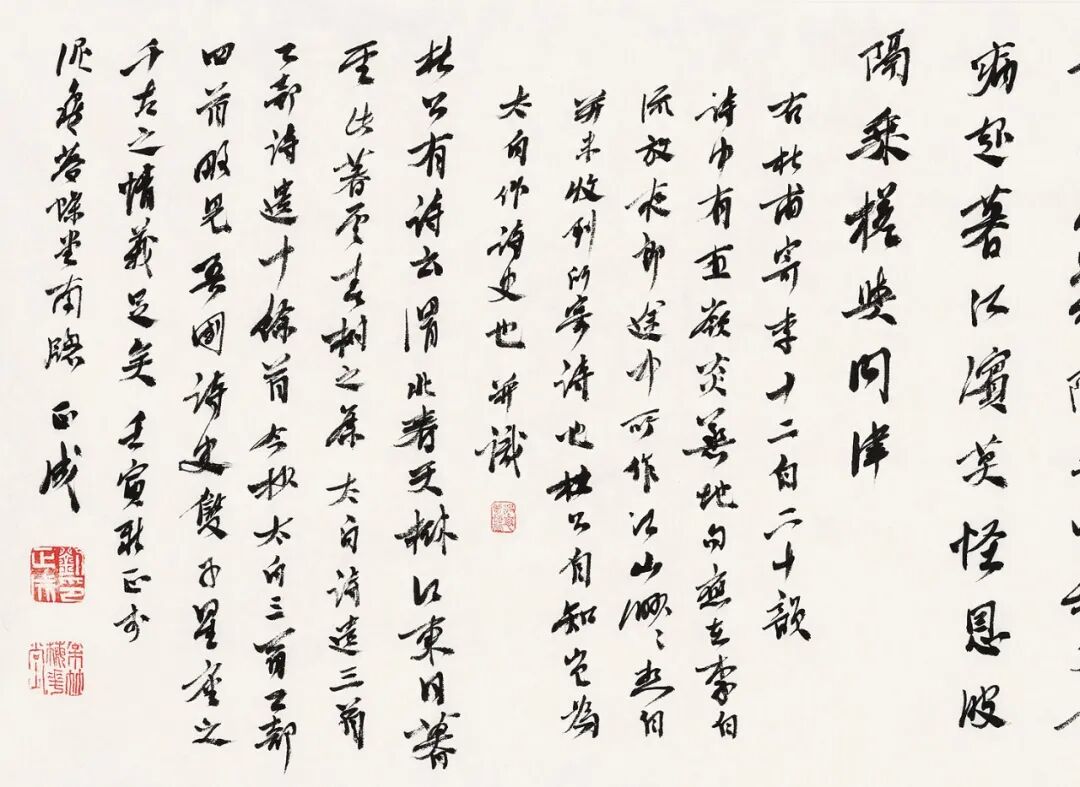 病起暮江濱莫怪恩波
隔乘槎與問津
右杜甫寄李十二白二十韻
詩中有五嶺炎蒸地句應在李白
流放夜郎途中所作江山渺渺想白
并未收到所寄詩也杜公自知豈為
太白作詩史也 并識
杜公有詩云渭北春天樹江東日暮
雲此暮雲春樹之篇太白詩遺三首
工部詩遺十餘首今抄太白三首工部
四首略見吾國詩史雙子星座之
千古之情義足矣 壬寅 正
堂南牕 正成